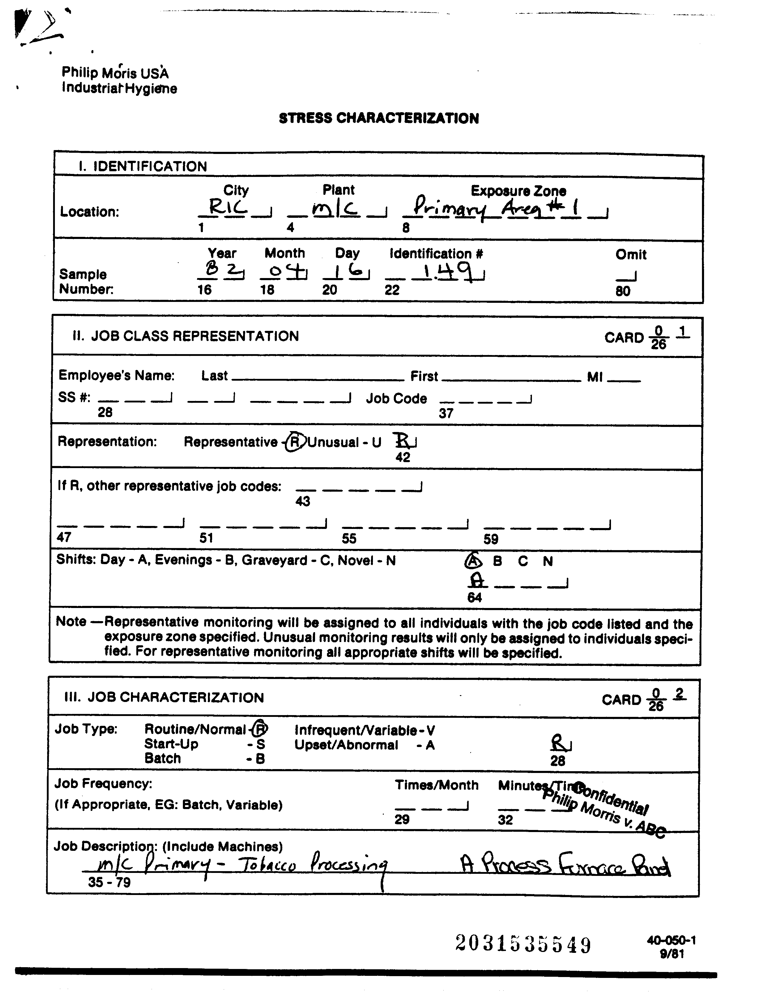 Philip Morris USA
Industrial Hygiene
STRESS CHARACTERIZATION
I. IDENTIFICATION
City Plant Exposure Zone
Location: RIC m/c Primary Area #1
1 4 8
Year Month Day Identification # Omit
Sample Number: 82 04 16 149
16 18 20 22 80
II. JOB CLASS REPRESENTATION CARD 0 1
26
Employee's Name: Last First MI
SS #: Job Code
28 37
Representation: Representative - R Unusual - U R
42
If R, other representative job codes:
43
47 51 55 59
Shifts: Day - A, Evenings - B, Graveyard - C, Novel - N A B C N
A
64
Note — Representative monitoring will be assigned to all individuals with the job code listed and the
exposure zone specified. Unusual monitoring results will only be assigned to individuals speci-
fied. For representative monitoring all appropriate shifts will be specified.
III. JOB CHARACTERIZATION CARD 0 2
26
Job Type: Routine/Normal - R Infrequent/Variable - V
Start-Up - S Upset/Abnormal - A R
Batch - B 28
Job Frequency: Times/Month Minutes/Time
(If Appropriate, EG: Batch, Variable)
29 32
Confidential
Philip Morris v. ABC
Job Description: (Include Machines)
m/c Primary - Tobacco Processing A Process Furnace Panel
35 - 79
2031535549
40-050-1
9/81